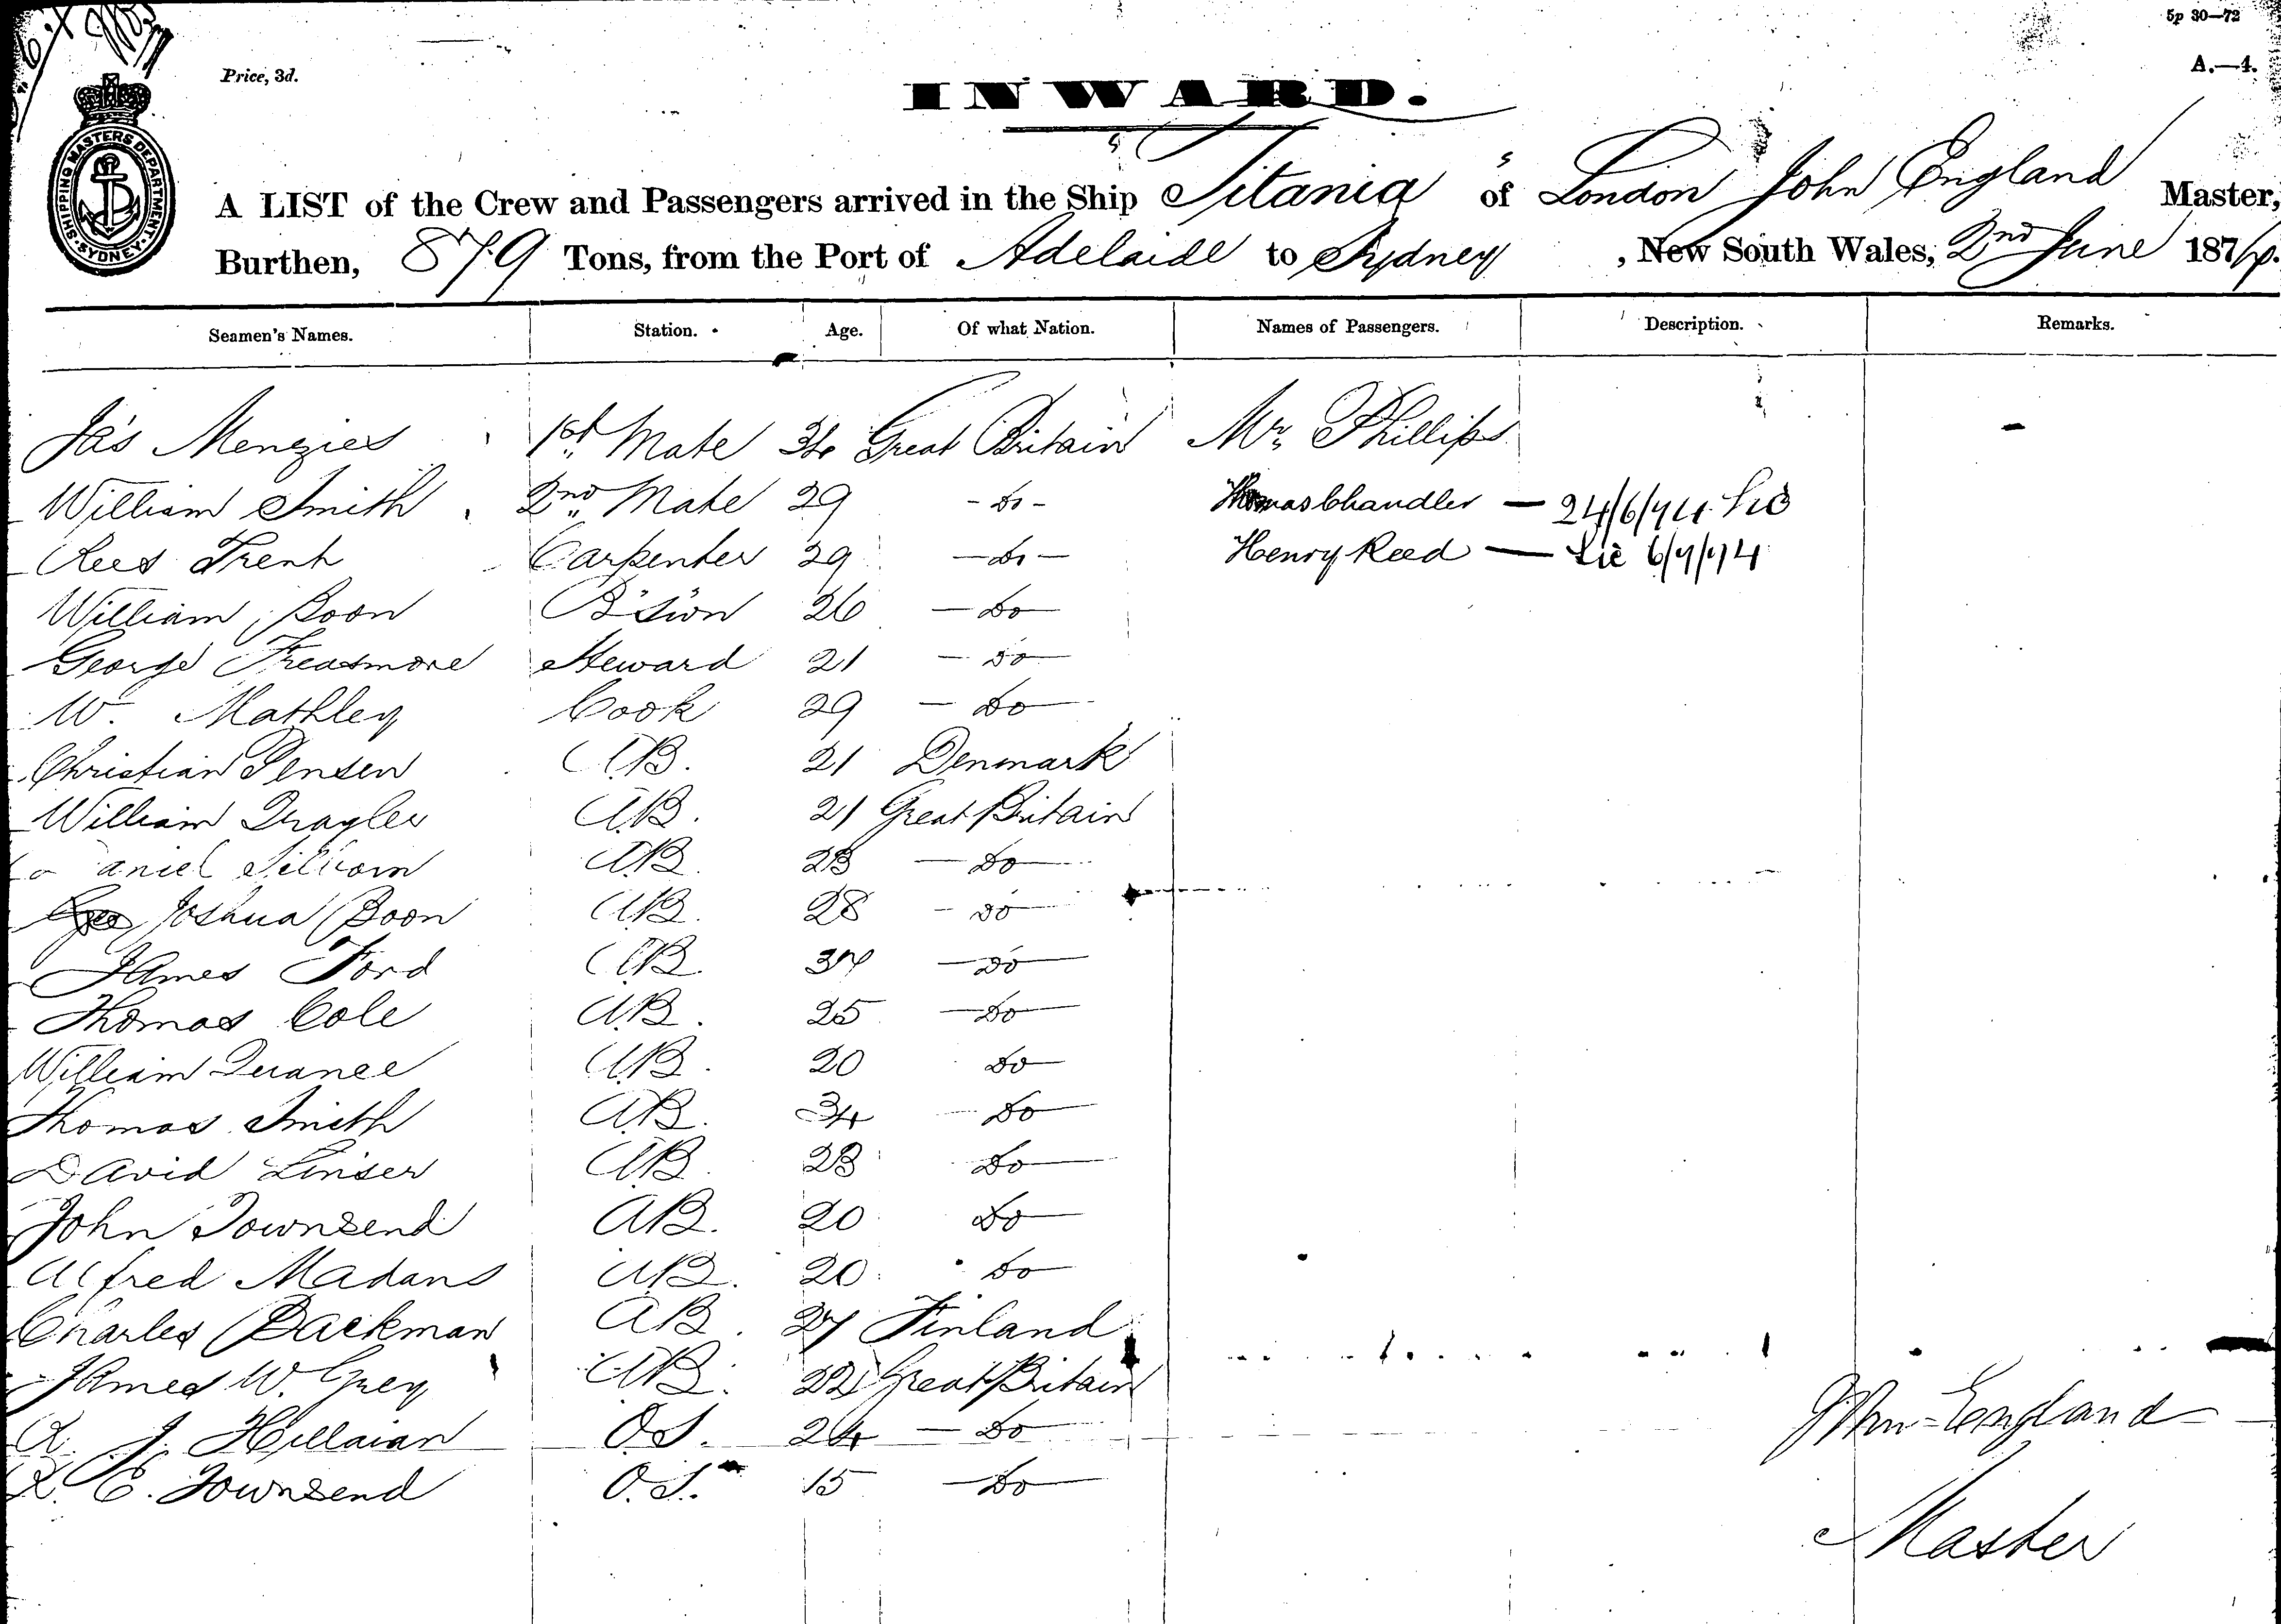 5p 30—72
Price, 3d.
A.—4.
INWARD.
SHIPPING MASTERS DEPARTMENT · SYDNEY ·
A LIST of the Crew and Passengers arrived in the Ship Titania of London John England Master,
Burthen, 879 Tons, from the Port of Adelaide to Sydney , New South Wales, 2nd June 1874.
Seamen's Names. Station. Age. Of what Nation. Names of Passengers. Description. Remarks.
Jas Menzies 1st Mate 34 Great Britain Mr. Phillips
William Smith 2nd Mate 29 - Do - Thomas Chandler — 24/6/74
Rees Trent Carpenter 29 — Do — Henry Reed — Lic 6/7/74
William Boon B'swn 26 — Do —
George Treasmore Steward 21 — Do
W. Mathley Cook 29 — Do —
Christian Jensen A.B. 21 Denmark
William A.B. 21 Great Britain
aniel A.B. 23 — Do —
Joshua Boon A.B. 28 - Do —
James Ford A.B. 37 — Do —
Thomas Cole A.B. 25 — Do —
William Quance A.B. 20 Do —
Thomas Smith A.B. 34 Do —
David Linser A.B. 23 Do —
John Townsend A.B. 20 Do —
Alfred Madans A.B. 20 Do —
Charles Backman A.B. 27 Finland
James W. Grey A.B. 22 Great Britain
J. O.S. 24 — Do —
E. Townsend O.S. 15 — Do —
John England
Master